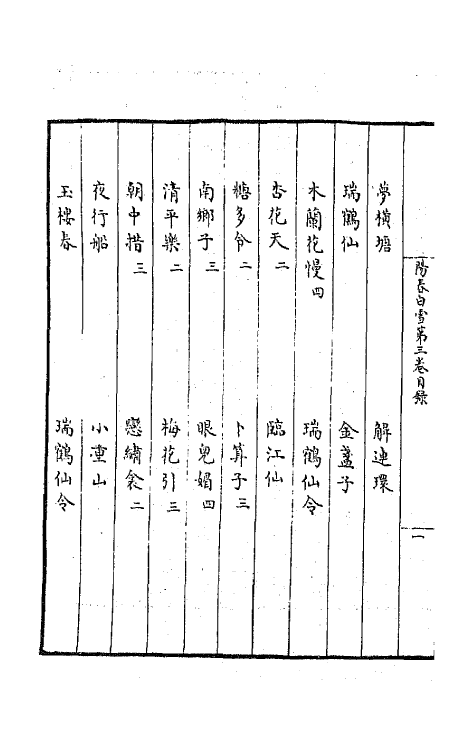 陽春白雪第三卷目錄
一
夢橫塘 解連環
瑞鶴仙 金盞子
木蘭花慢四 瑞鶴仙令
杏花天二 臨江仙
糖多令二 卜算子三
南鄉子三 眼兒媚四
清平樂二 梅花引三
朝中措三 戀繡衾二
夜行船 小重山
玉樓春 瑞鶴仙令